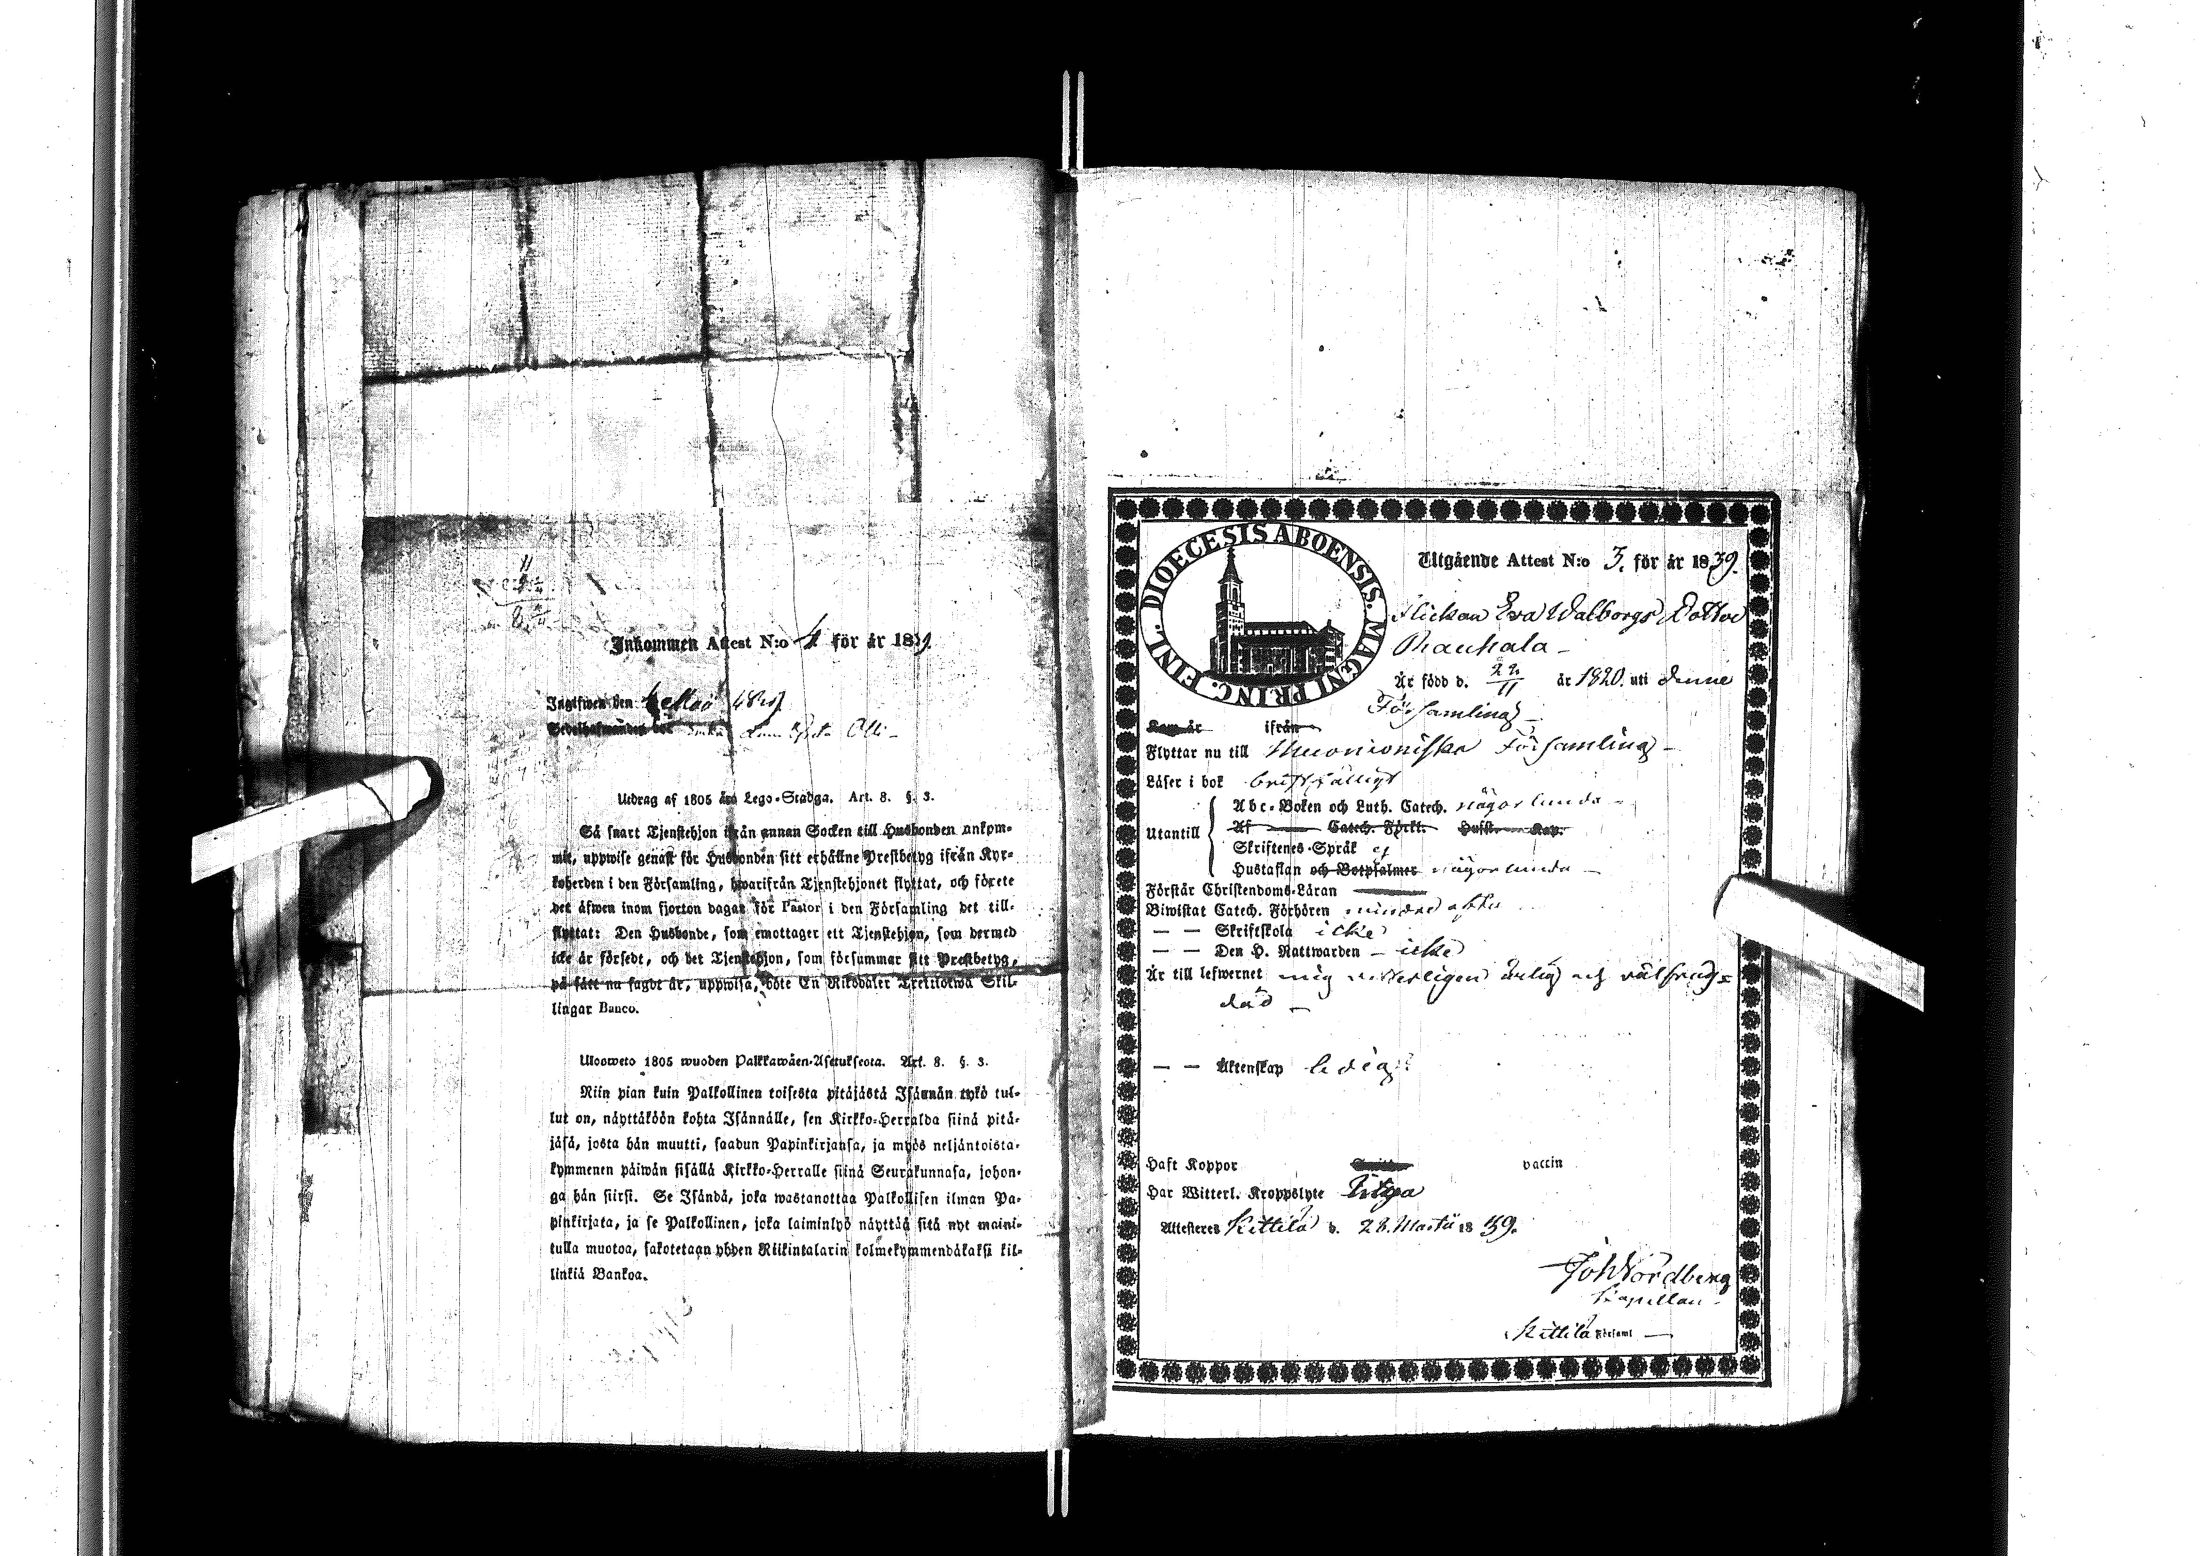 Inkommen Attest N:o 4 för år 1839.
Ingifwen den
Enka Olli
Utdrag af 1805 års Lego-Stadga. Art. 8. §. 3.
Så snart Tjenstehjon ifrån annan Socken till Husbonden ankom-
mit, uppwise genast för Husbonden sitt erhållne Prestbetyg ifrån Kyr-
koherden i den Församling, hwarifrån Tjenstehjonet flyttat, och förete
det äfwen inom fjorton dagar för Pastor i den Församling det till-
flyttat: Den Husbonde, som emottager ett Tjenstehjon, som dermed
icke är försedt, och det Tjenstehjon, som försummar sitt Prestbetyg,
på sätt nu sagdt är, uppwisa, böte En Riksdaler Trettiotwå Skil-
lingar Banco.
Ulosweto 1805 wuoden Palkkawäen-Asetuksesta. Art. 8. §. 3.
Niin pian kuin Palkollinen toisesta pitäjästä Isännän tykö tul-
lut on, näyttäköön kohta Isännälle, sen Kirkko-Herralda siinä pitä-
jäsä, josta hän muutti, saadun Papinkirjansa, ja myös neljäntoista-
kymmenen päiwän sisällä Kirkko-Herralle siinä Seurakunnasa, johon-
ga hän siirsi. Se Isändä, joka wastanottaa Palkollisen ilman Pa-
pinkirjata, ja se Palkollinen, joka laiminlyö näyttää sitä nyt maini-
tulla muotoa, sakotetaan yhden Riikintalarin kolmekymmendäkaksi kil-
linkiä Bankoa.
DIOECESIS ABOENSIS. MAGNI PRINC. FINL.
Utgående Attest N:o 3. för år 1839.
Flickan Eva Walborgs Dotter
Rauhala
Är född d. 22/11 år 1820. uti denne
Församling
Kom år ifrån
Flyttar nu till Muonioniska Församling
Läser i bok bristfälligt
Utantill
Abc-Boken och Luth. Catech. någorlunda
Af Catech. Förkl. Hufst. Kap.
Skriftenes-Språk ej
Hustaflan och Botpsalmer någorlunda
Förstår Christendoms-Läran
Biwistat Catech. Förhören mindre ofta
— — Skriftskola icke
— — Den H. Nattwarden icke
Är till lefwernet mig witterligen ärlig och välfräg-
dad
— — Äktenskap ledig
Haft Koppor vaccin
Har Witterl. Kroppslyte Inga
Attesteres Kittilä d. 28. Martii 1839.
Joh Nordberg
Kapellan
Kittilä Församl